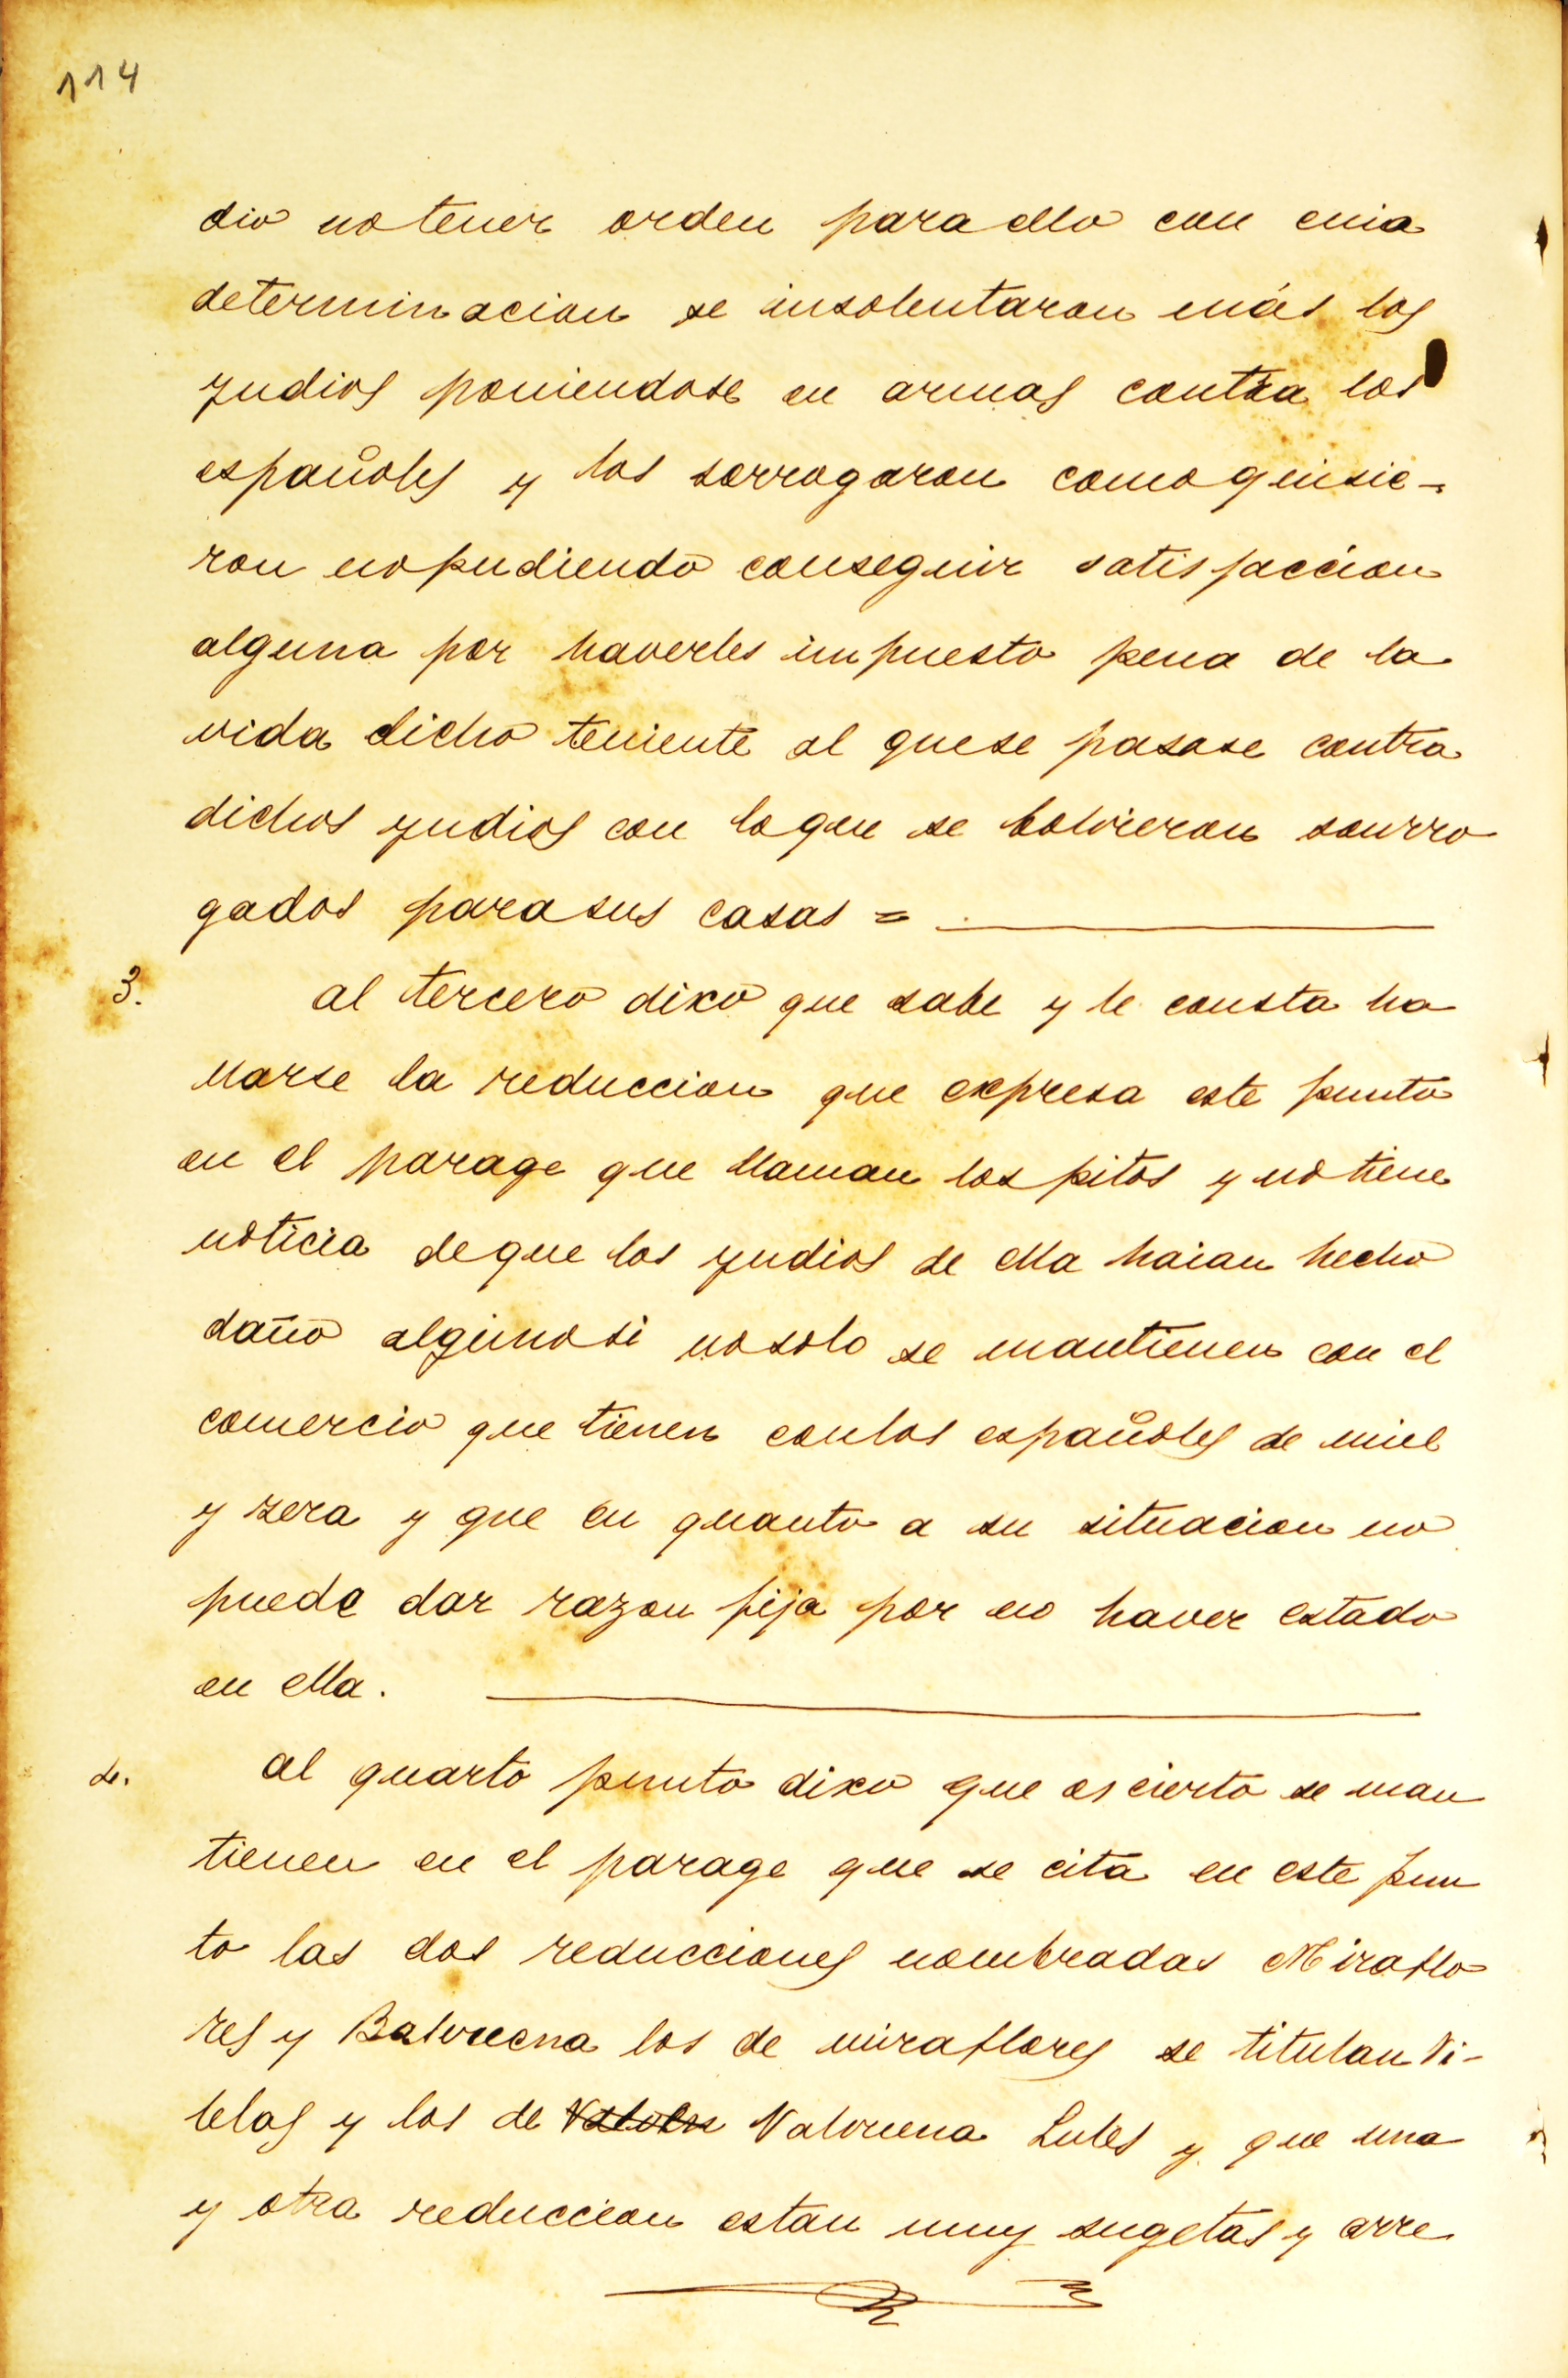 114
dio no tener orden para ello con cuia
determinacion se insolentaron más los
yndios poniendose en armas contra los
españoles y los sorrogaron como quisie-
ron no pudiendo conseguir satisfaccion
alguna por haverles impuesto pena de la
vida dicho teniente al que se pasase contra
dichos yndios con lo que se bolvieron sourro
gados para sus casas =
3. al tercero dixo que sabe y le consta ha
llarse la reduccion que expresa este punto
en el parage que llaman los pitos y no tiene
noticia de que los yndios de ella haian hecho
daño alguno si no solo se mantienen con el
comercio que tienen con los españoles de miel
y zera y que en quanto a su situacion no
puede dar razon fija por no haver estado
en ella.
4. al quarto punto dixo que es cierto se man
tienen en el parage que se cita en este pun
to las dos reducciones nombradas Miraflo
res y Balvuena los de miraflores se titulan Vi-
lelas y los de Valvuena Lules y que una
y otra reduccion estan muy sugetas y arre